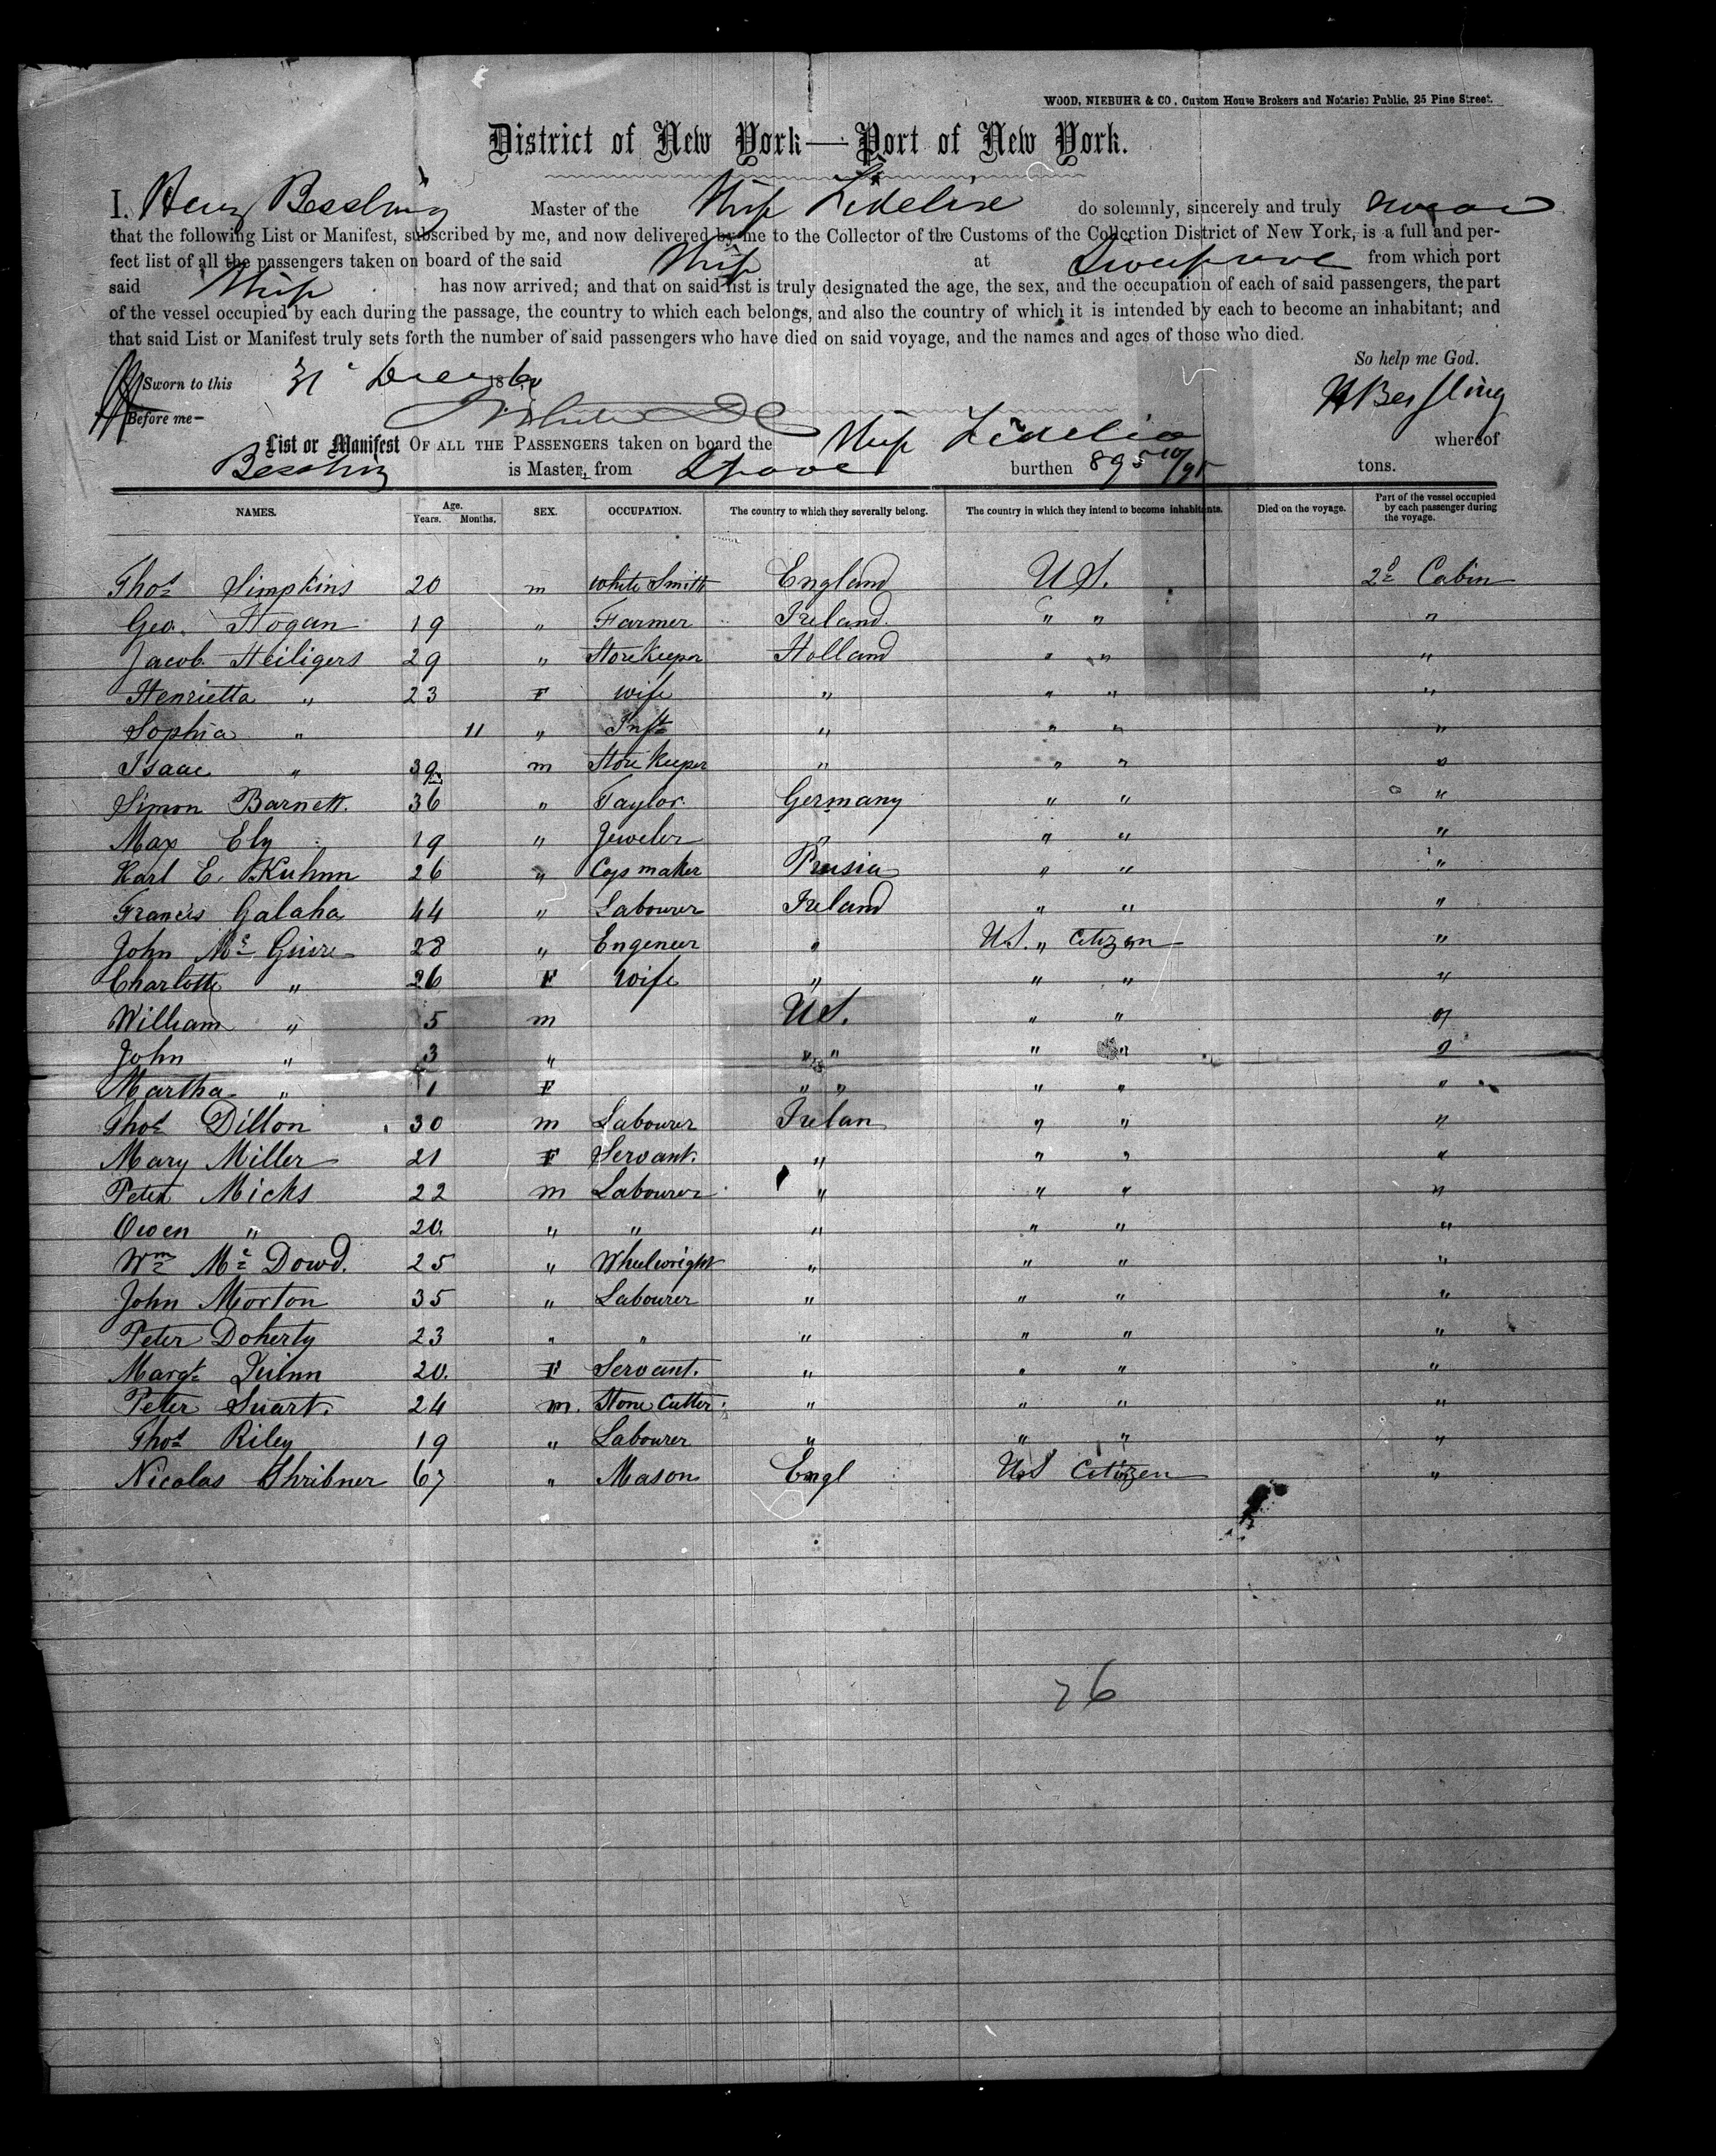 WOOD, NIEBUHR & CO., Custom House Brokers and Notaries Public, 25 Pine Street.
District of New York—Port of New York.
I, Henry Bessling Master of the Ship Fidelia do solemnly, sincerely and truly swear
that the following List or Manifest, subscribed by me, and now delivered by me to the Collector of the Customs of the Collection District of New York, is a full and per-
fect list of all the passengers taken on board of the said Ship at Liverpool from which port
said Ship has now arrived; and that on said list is truly designated the age, the sex, and the occupation of each of said passengers, the part
of the vessel occupied by each during the passage, the country to which each belongs, and also the country of which it is intended by each to become an inhabitant; and
that said List or Manifest truly sets forth the number of said passengers who have died on said voyage, and the names and ages of those who died.
So help me God.
Sworn to this 31 Decem 186
H Bessling
Before me—
List or Manifest OF ALL THE PASSENGERS taken on board the Ship Fidelia whereof
Bessling is Master, from Lpool burthen 895 10/95 tons.
NAMES. Age. Years. Months. SEX. OCCUPATION. The country to which they severally belong. The country in which they intend to become inhabitants. Died on the voyage. Part of the vessel occupied by each passenger during the voyage.
Thos Simpkins 20 m White Smith England U S. 2d Cabin
Geo. Hogan 19 " Farmer Ireland. " " "
Jacob Heiligers 29 " Storekeeper Holland " " "
Henrietta " 23 F wife " " " "
Sophia " 11 " Inft " " " "
Isaac " 39 m Store Keeper " " " "
Simon Barnett. 36 " Taylor. Germany " " "
Max Ely 19 " Jeweler " " " "
Karl E. Kuhnn 26 " Cap maker Prusia " " "
Francis Galaha 44 " Labourer Ireland " " "
John Mc Guire 28 " Engeneer " U.S. " Citizen "
Charlotte " 26 F Wife " " " "
William " 5 m U S. " " "
John " 3 " " " " " "
Martha " 1 F " " " " "
Thos Dillon 30 m Labourer Irelan " " "
Mary Miller 21 F Servant. " " " "
Peter Micks 22 m Labourer " " " "
Owen " 20. " " " " " "
Wm Mc Dowd. 25 " Wheelwright " " " "
John Morton 35 " Labourer " " " "
Peter Doherty 23 " " " " " "
Margt Quinn 20. F Servant. " " " "
Peter Suart. 24 m. Stone Cutter " " " "
Thos Riley 19 " Labourer " " " "
Nicolas Shribner 67 " Mason Engl U S Citizen "
26